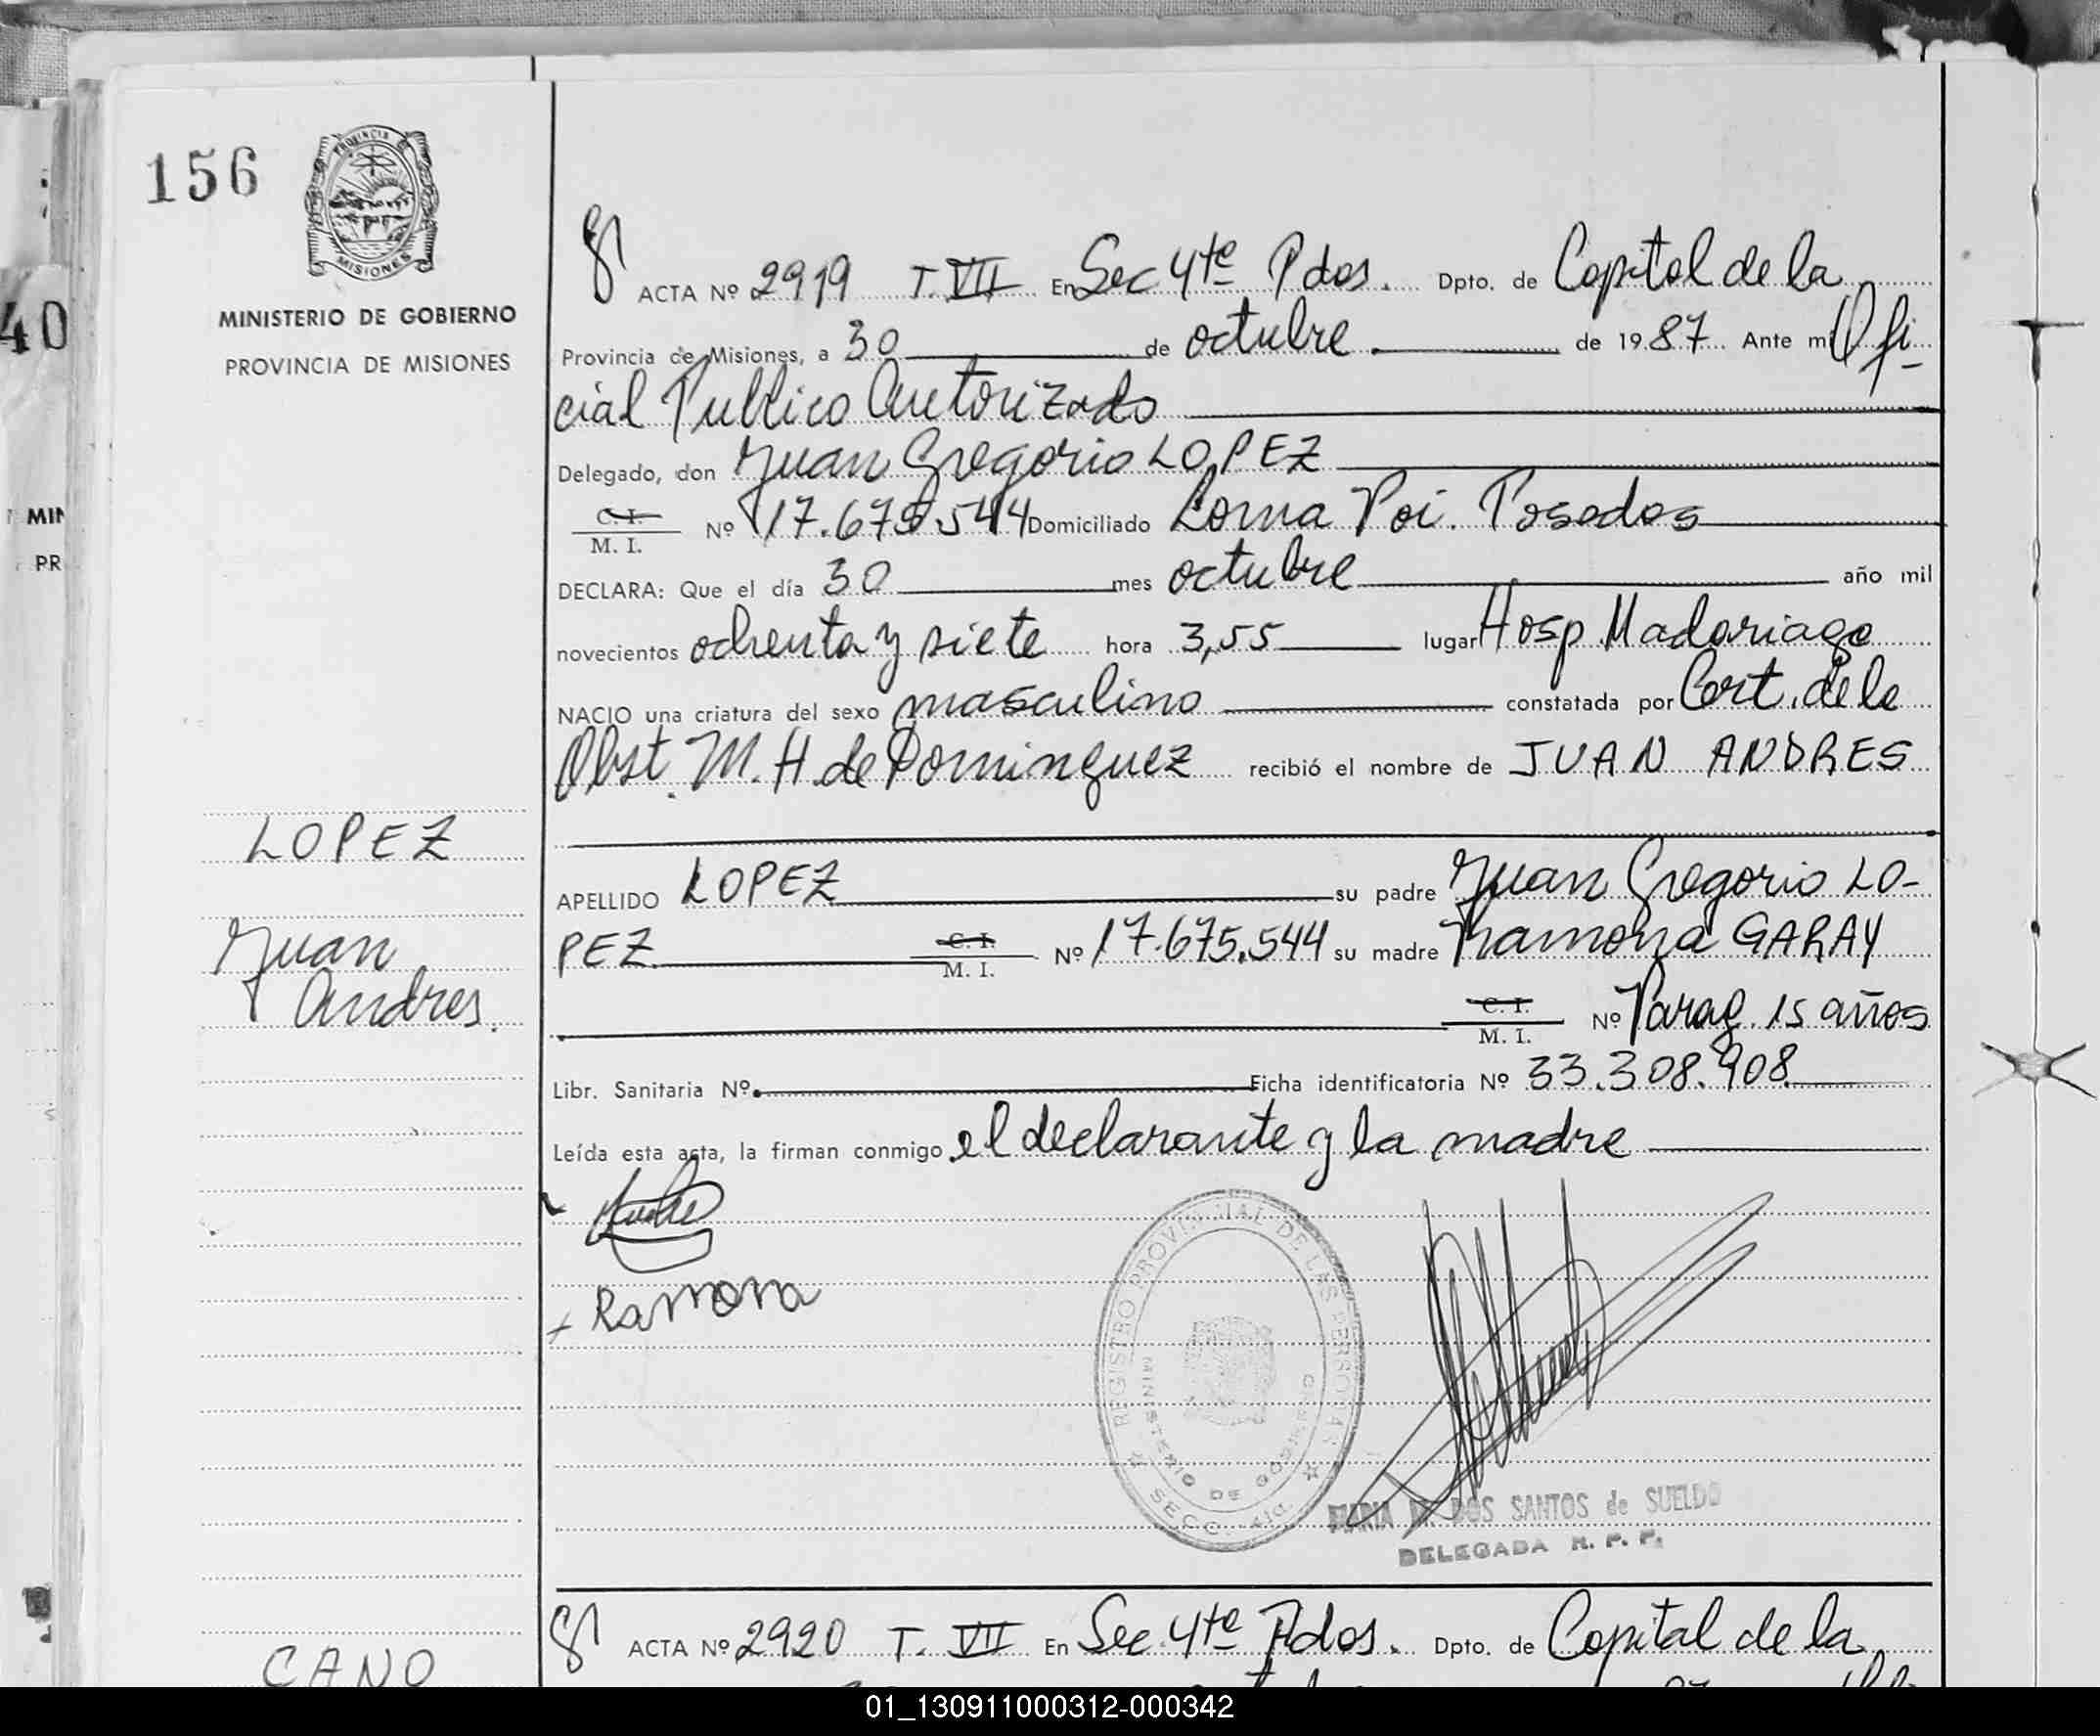 156
PROVINCIA
MISIONES
MINISTERIO DE GOBIERNO
PROVINCIA DE MISIONES
40
MIN
PR
LOPEZ
Juan
Andres.
CANO
ACTA Nº 2919 T. VII En Sec 4te Pdos. Dpto. de Capital de la
Provincia de Misiones, a 30 de octubre de 1987 Ante mi Ofi-
cial Publico Autorizado
Delegado, don Juan Gregorio LOPEZ
C. I.
M. I. Nº 17.675.544 Domiciliado Loma Poi. Posadas
DECLARA: Que el día 30 mes octubre año mil
novecientos ochenta y siete hora 3,55 lugar Hosp. Madariaga
NACIO una criatura del sexo masculino constatada por Cert. de la
Obst. M. H. de Dominguez recibió el nombre de JUAN ANDRES
APELLIDO LOPEZ su padre Juan Gregorio LO-
PEZ C. I. M. I. Nº 17.675.544 su madre Ramona GARAY
C. I. M. I. Nº Parag. 15 años
Libr. Sanitaria Nº. Ficha identificatoria Nº 33.308.908
Leída esta acta, la firman conmigo el declarante y la madre
Ramona
REGISTRO PROVINCIAL DE LAS PERSONAS
MINISTERIO DE GOBIERNO
SECC. 4ta
MARIA DOS SANTOS de SUELDO
DELEGADA R. P. P.
ACTA Nº 2920 T. VII En Sec. 4te Pdos. Dpto. de Capital de la
01_130911000312-000342